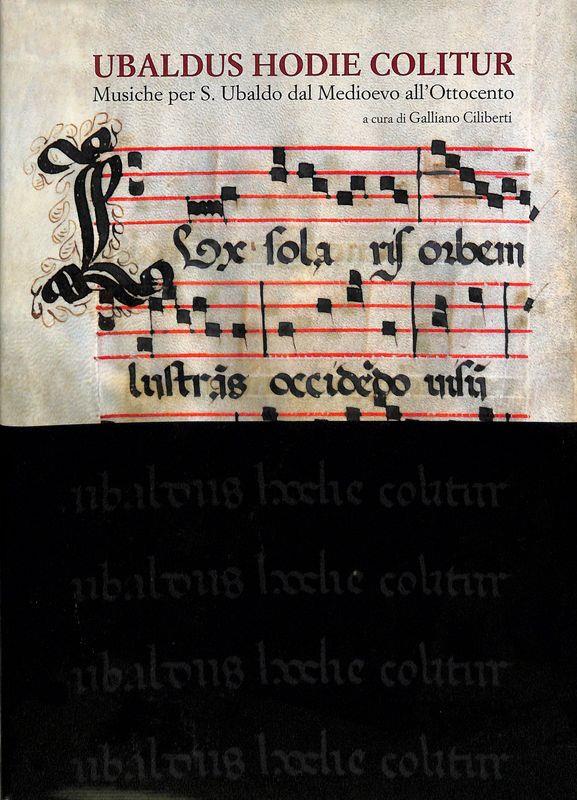 UBALDUS HODIE COLITUR
Musiche per S. Ubaldo dal Medioevo all'Ottocento
a cura di Galliano Ciliberti
Lux sola ris orbem
lustrãs occidẽdo
ubaldus hodie colitur
ubaldus hodie colitur
ubaldus hodie colitur
ubaldus hodie colitur